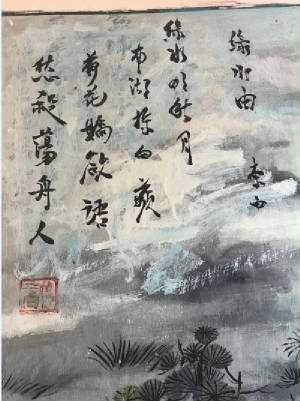 綠水曲
李白
綠水明秋月
南湖採白蘋
荷花嬌欲語
愁殺蕩舟人